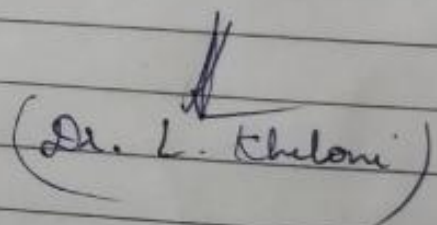 (Dr. L. Kheloni)